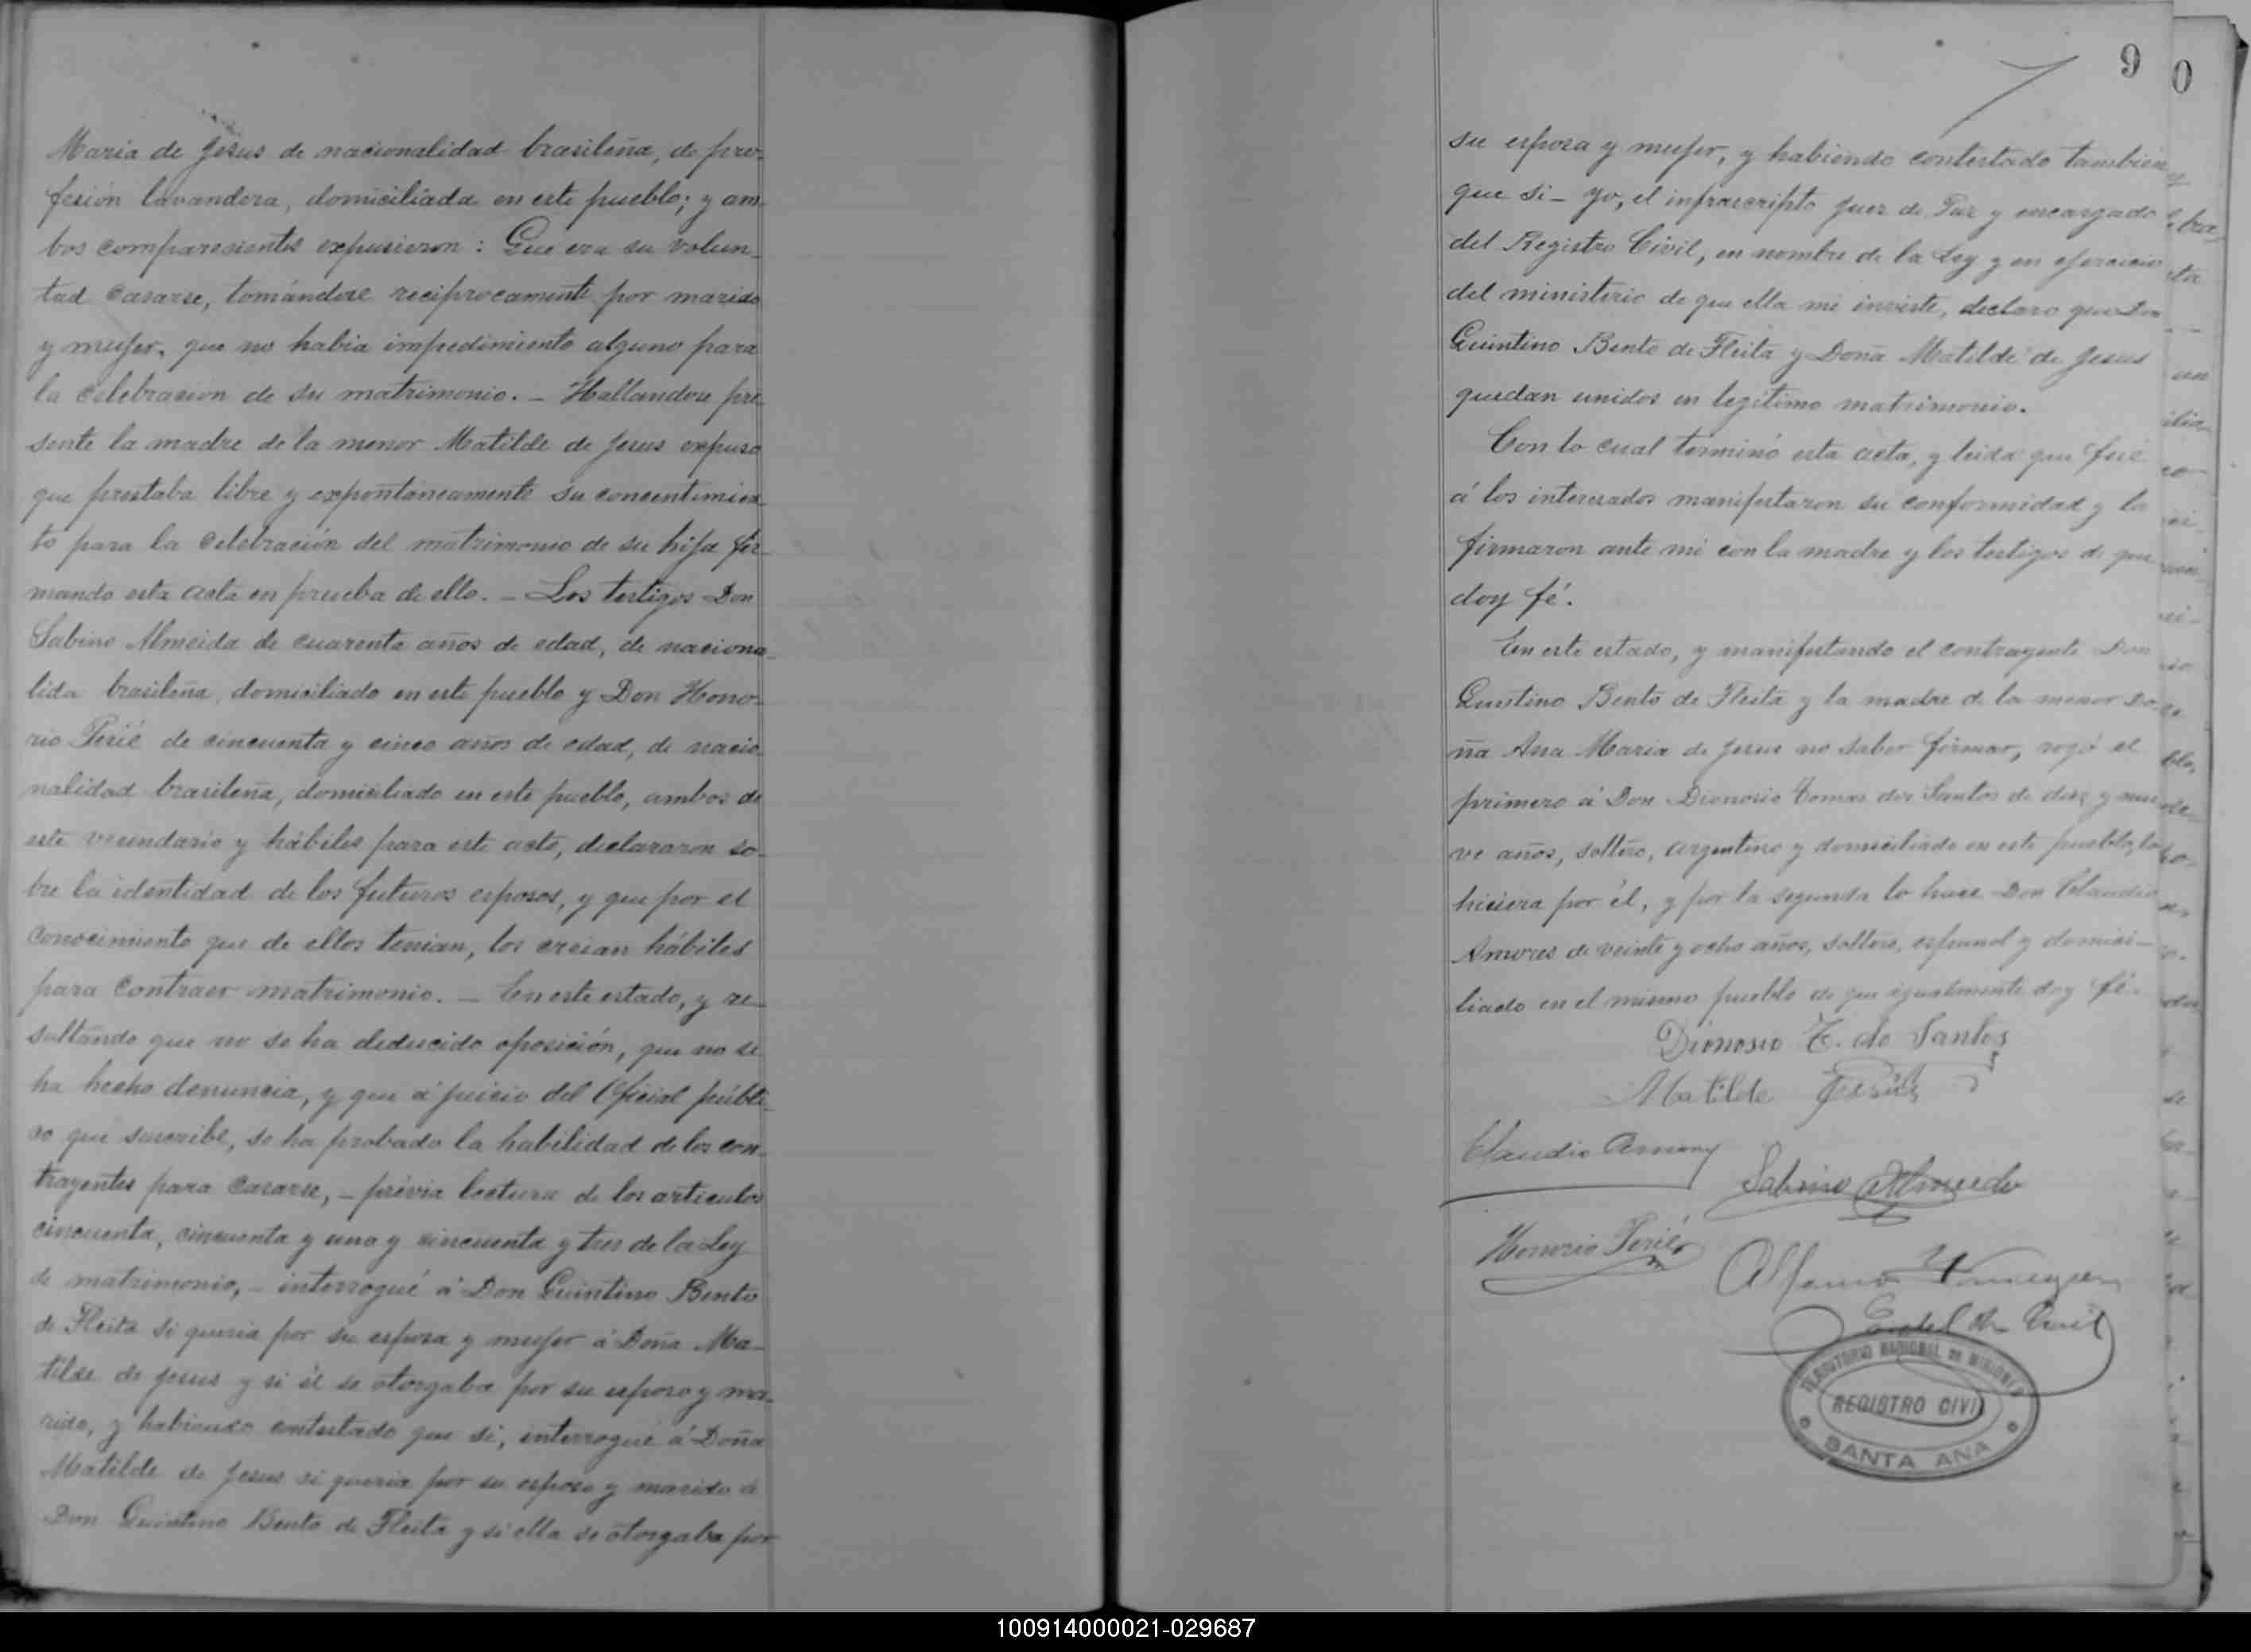 Maria de Jesus de nacionalidad brasileña, de pro-
fesión lavandera, domiciliada en este pueblo; y am-
bos comparecientes expusieron: Que era su volun-
tad casarse, tomándose reciprocamente por marido
y mujer, que no habia impedimiento alguno para
la celebracion de su matrimonio. – Hallandose pre-
sente la madre de la menor Matilde de Jesus expuso
que prestaba libre y expontáneamente su concentimien-
to para la celebración del matrimonio de su hija fir-
mando esta acta en prueba de ello. – Los testigos Don
Sabino Almeida de cuarenta años de edad, de naciona-
lida brasileña, domiciliado en este pueblo y Don Hono-
rio Perié de cincuenta y cinco años de edad, de nacio-
nalidad brasileña, domiciliado en este pueblo, ambos de
este vecindario y hábiles para este acto, declararon so-
bre la identidad de los futuros esposos, y que por el
conocimiento que de ellos tenian, los creian hábiles
para contraer matrimonio. – En este estado, y re-
sultando que no se ha deducido oposición, que no se
ha hecho denuncia, y que á juicio del Oficial públi-
co que suscribe, se ha probado la habilidad de los con-
trayentes para casarse, – prévia lectura de los articulos
cincuenta, cincuenta y uno y cincuenta y tres de la Ley
de matrimonio, – interrogué á Don Quintino Bento
de Fleita si queria por su esposa y mujer á Doña Ma-
tilde de Jesus y si él se otorgaba por su esposo y ma-
rido, y habiendo contestado que si, interrogué á Doña
Matilde de Jesus si queria por su esposo y marido á
Don Quintino Bento de Fleita y si ella se otorgaba por
9 0
su esposa y mujer, y habiendo contestado tambien
que si – yo, el infrascripto Juez de Paz y encargado
del Registro Civil, en nombre de la Ley y en ejercicio
del ministerio de que ella me inviste, declaro que Don
Quintino Bento de Fleita y Doña Matilde de Jesus
quedan unidos en legítimo matrimonio.
Con lo cual terminó esta acta, y leida que fué
á los interesados manifestaron su conformidad y la
firmaron ante mi con la madre y los testigos de que
doy fé.
En este estado, y manifestando el contrayente Don
Quintino Bento de Fleita y la madre de la menor Do-
ña Ana Maria de Jesus no saber firmar, rogó el
primero á Don Dionosio Tomas dos Santos de diez y nue-
ve años, soltero, argentino y domiciliado en este pueblo, lo
hiciera por él, y por la segunda lo hace Don Claudio
de veinte y ocho años, soltero, español y domici-
liado en el mismo pueblo de que igualmente doy fé.
Dionosio T. do Santos
Matilde Jesus
Claudio
Sabino Almeida
Honorio Perié
Civil
TERRITORIO NACIONAL DE MISIONES
REGISTRO CIVIL
SANTA ANA
100914000021-029687